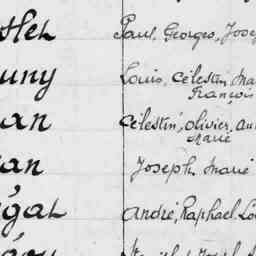 Paul, Georges, Jose
uny Louis, Célestin, Ma
François
an Célestin, Olivier, au
Marie
an Joseph Marie
gat André, Raphael, Lo